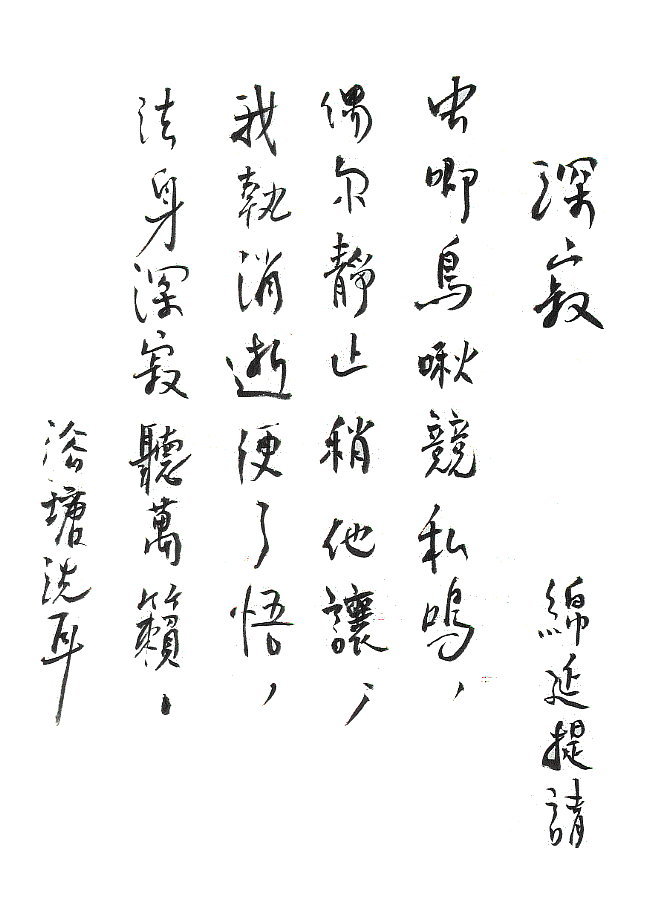 深寂
綿延提請
虫唧鳥啾競私鳴，
偶尔靜止稍他讓，
我執消逝便了悟，
法身深寂聽萬籟。
洗耳